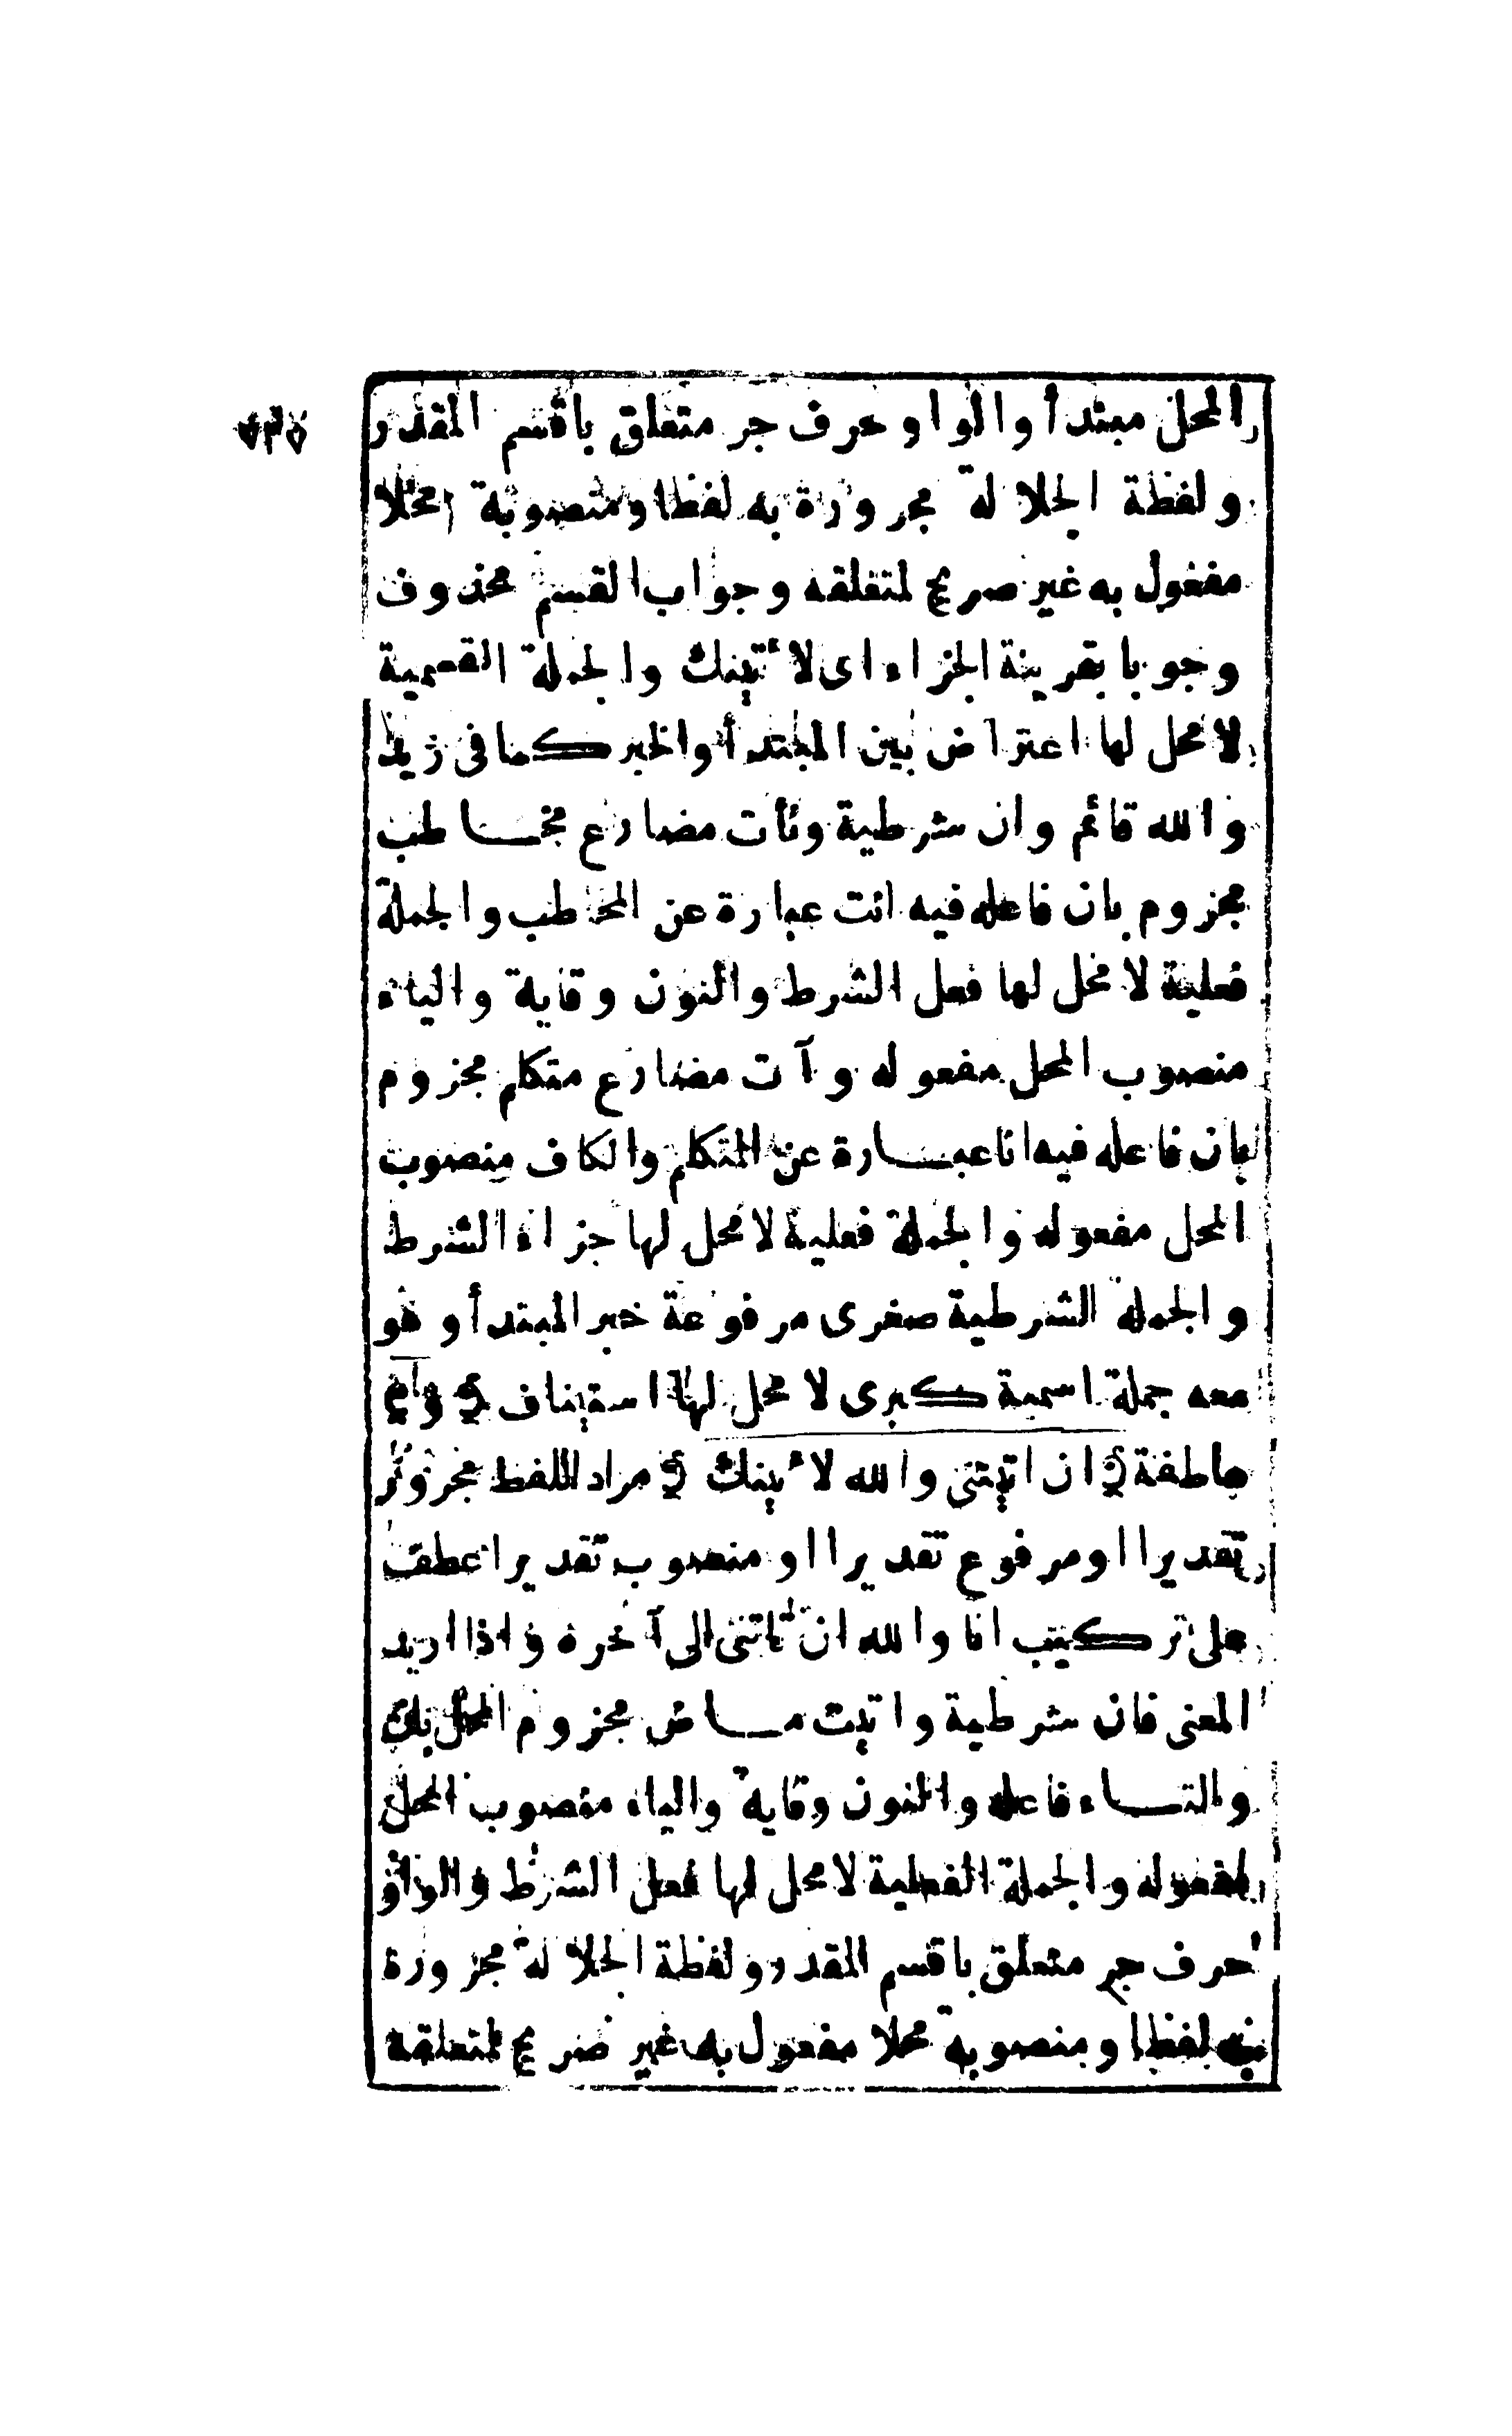 المحل مبتدأ والواو حرف جر متعلق باقسم المقدر
ولفظة الجلالة مجرورة به لفظا ومنصوبة محلا
مفعول به غير صريح لمتعلقه وجواب القسم محذوف
وجوبا بقرينة الجزاء اى لاٴتينك والجملة القسمية
لا محل لها اعتراض بين المبتدأ والخبر كما فى زيد
والله قائم وان شرطية وتأت مضارع مخاطب
مجزوم بان فاعله فيه انت عبارة عن المخاطب والجملة
فعلية لا محل لها فعل الشرط والنون وقاية والياء
منصوب المحل مفعوله وآت مضارع متكلم مجزوم
بان فاعله فيه انا عبارة عن المتكلم والكاف منصوب
المحل مفعوله والجملة فعلية لا محل لها جزاء الشرط
والجملة الشرطية صغرى مرفوعة خبر المبتدأ وهو
معه جملة اسمية كبرى لا محل لها استيناف ﴿ و ﴾
عاطفة ﴿ ان اتيتنى والله لاٴتينك ﴾ مراد اللفظ مجرور
تقديرا او مرفوع تقديرا او منصوب تقديرا عطف
على تركيب انا والله ان تاتنى الى آخره واذا اريد
المعنى فان شرطية واتيت ماض مجزوم المحل بان
والتاء فاعله والنون وقاية والياء منصوب المحل
مفعوله والجملة الفعلية لا محل لها فعل الشرط والواو
حرف جر متعلق باقسم المقدر ولفظة الجلالة مجرورة
به لفظا ومنصوبة محلا مفعول به غير صريح لمتعلقه